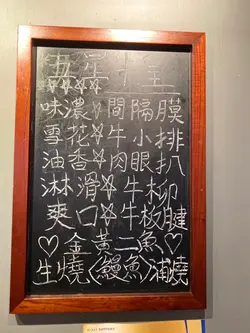 五星
☆☆☆☆
味濃☆間隔膜
雪花☆牛小排
油香☆肉眼扒
淋滑☆牛柳
爽口☆牛板腱
♡金黃二魚♡
生燒<鰻魚>蒲燒